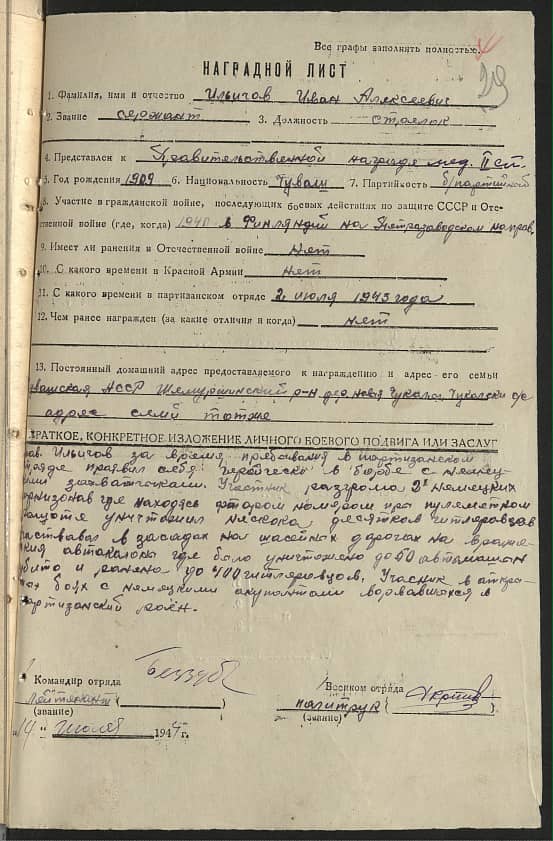 Все графы заполнять полностью.
29
НАГРАДНОЙ ЛИСТ
1. Фамилия, имя и отчество Ильичов Иван Алексеевич
2. Звание сержант 3. Должность стрелок
4. Представлен к Правительственной награде мед. II ст.
5. Год рождения 1909 6. Национальность Чуваш 7. Партийность б/партийный
8. Участие в гражданской войне, последующих боевых действиях по защите СССР и Оте-
ственной войне (где, когда) 1940 в Финляндий на Петрозаводском направ.
9. Имеет ли ранения в Отечественной войне Нет
10. С какого времени в Красной Армии нет
11. С какого времени в партизанском отряде 2 июля 1943 года
12. Чем ранее награжден (за какие отличия и когда) нет
13. Постоянный домашний адрес предоставляемого к награждению и адрес его семьи
вашская АССР Шемуршинский р-н дер новая Чукалы Чукалски с/с
адрес семи тотже
КРАТКОЕ, КОНКРЕТНОЕ ИЗЛОЖЕНИЕ ЛИЧНОГО БОЕВОГО ПОДВИГА ИЛИ ЗАСЛУГ
ав. Ильичов за время пребывания в партизанском
тряде проявил себя геройческо в борьбе с немец-
кими захватчиками. Участник разгрома 2х немецких
арнизонов где находясь фторым номером при пулеметном
расчоте уничтожил несколо десятков гитлеровцов
аствовал в засадах на шасейных дорогах на враже-
кия автоколоны где было уничтожено до 60 автомашин
бито и ранено до 400 гитлеривцов. Учасник в аткры-
тых боях с немецкими акупонтами ворвавшихся в
артизанский раён.
Командир отряда
лейтенант ( )
(звание)
Военком отряда
политрук ( )
(звание)
"14" июля 1944 г.